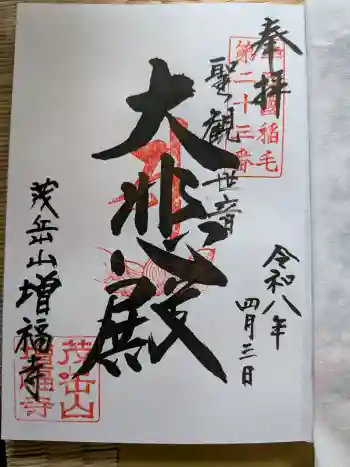 奉拝
西國稲毛
第二十三番
聖観世音
大非殿
令和八年
四月三日
茂岳山増福寺
茂岳山
増福寺